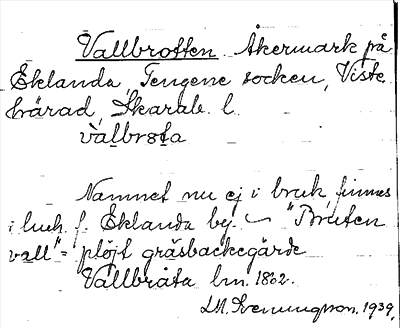 Vallbrotten Åkermark på
Eklanda, Tengene socken, Viste
härad, Skarab. l.
valbrota
Namnet nu ej i bruk, finnes
i luh. f. Eklanda by. "Bruten
vall" = plöjt gräsbackegärde
Vallbråta lm. 1802.
LM. Svenungson. 1939.